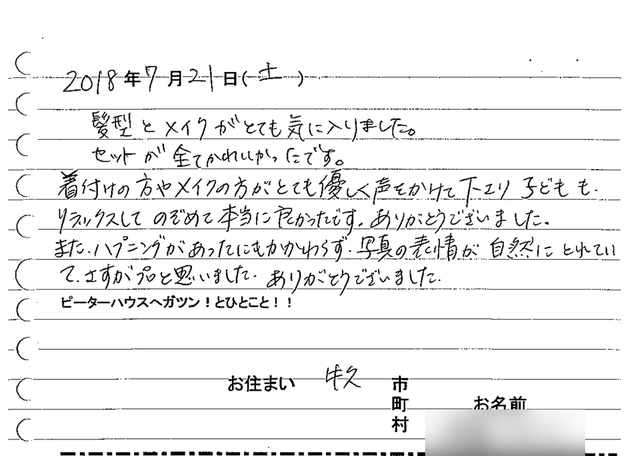 2018年7月21日(土)
髪型とメイクがとても気に入りました。
セットが全てかわいかったです。
着付けの方やメイクの方がとても優しく声をかけて下さり 子どもも、
リラックスして のぞめて本当に良かったです。ありがとうございました。
また、ハプニングがあったにもかかわらず、写真の表情が 自然に とれてい
て、さすがプロと思いました。ありがとうございました。
ピーターハウスへガツン!とひとこと!!
お住まい 牛久 市
町
村
お名前